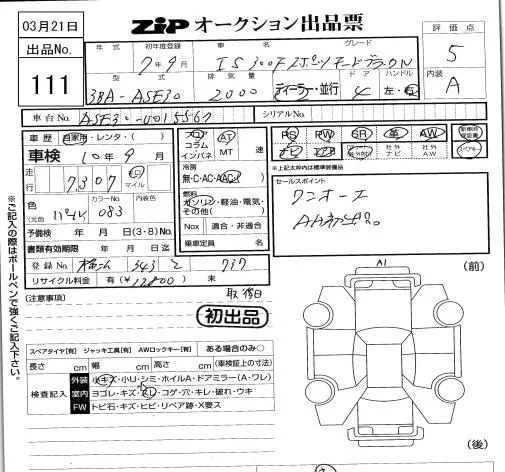 03月21日
ZIP オークション出品票
評価点
5
出品No.
111
年式 初年度登録 車名 グレード
7年9 IS300h Fスポーツモードブラック
内装
A
型式 排気量 ドア ハンドル
DAA-ASE30 2000 ディーラー・並行 4 左・右
車台No. ASE30-0015567 シリアルNo.
車歴 自家用・レンタ・( )
フロア
コラム
インパネ
AT
MT
速
PS PW SR 革 AW
新車時保証書
ナビ エアB 社外ナビ 社外AW スペアキー
※上記太枠内は標準装備品
車検 10年9月
冷房
無・C・AC・AAC
走行 7307 キロ マイル
燃料
ガソリン・軽油・電気・その他( )
セールスポイント
ワンオーナー
AA初出品。
色 (元色) カラーNo. 内装色
パール 083
Nox 適合・非適合
予備検 年 月 日(3・8)No.
乗車定員 名
書類有効期限 年 月 日迄
登録No.
リサイクル料金 有(¥12800)未
(注意事項)
初出品
※ご記入の際はボールペンで強くご記入下さい。
スペアタイヤ[有] ジャッキ工具[有] AWロックキー[有] ある場合のみ○
長さ cm 幅 cm 高さ cm (車検証上の寸法)
検査記入
外装 小キズ・小U・シミ・ホイルA・ドアミラー(A・ワレ)
室内 ヨゴレ・キズ・スレ・コゲ・穴・キレ・破れ・ウキ
FW トビ石・キズ・ヒビ・リペア跡・X要ス
A1
(前)
(後)